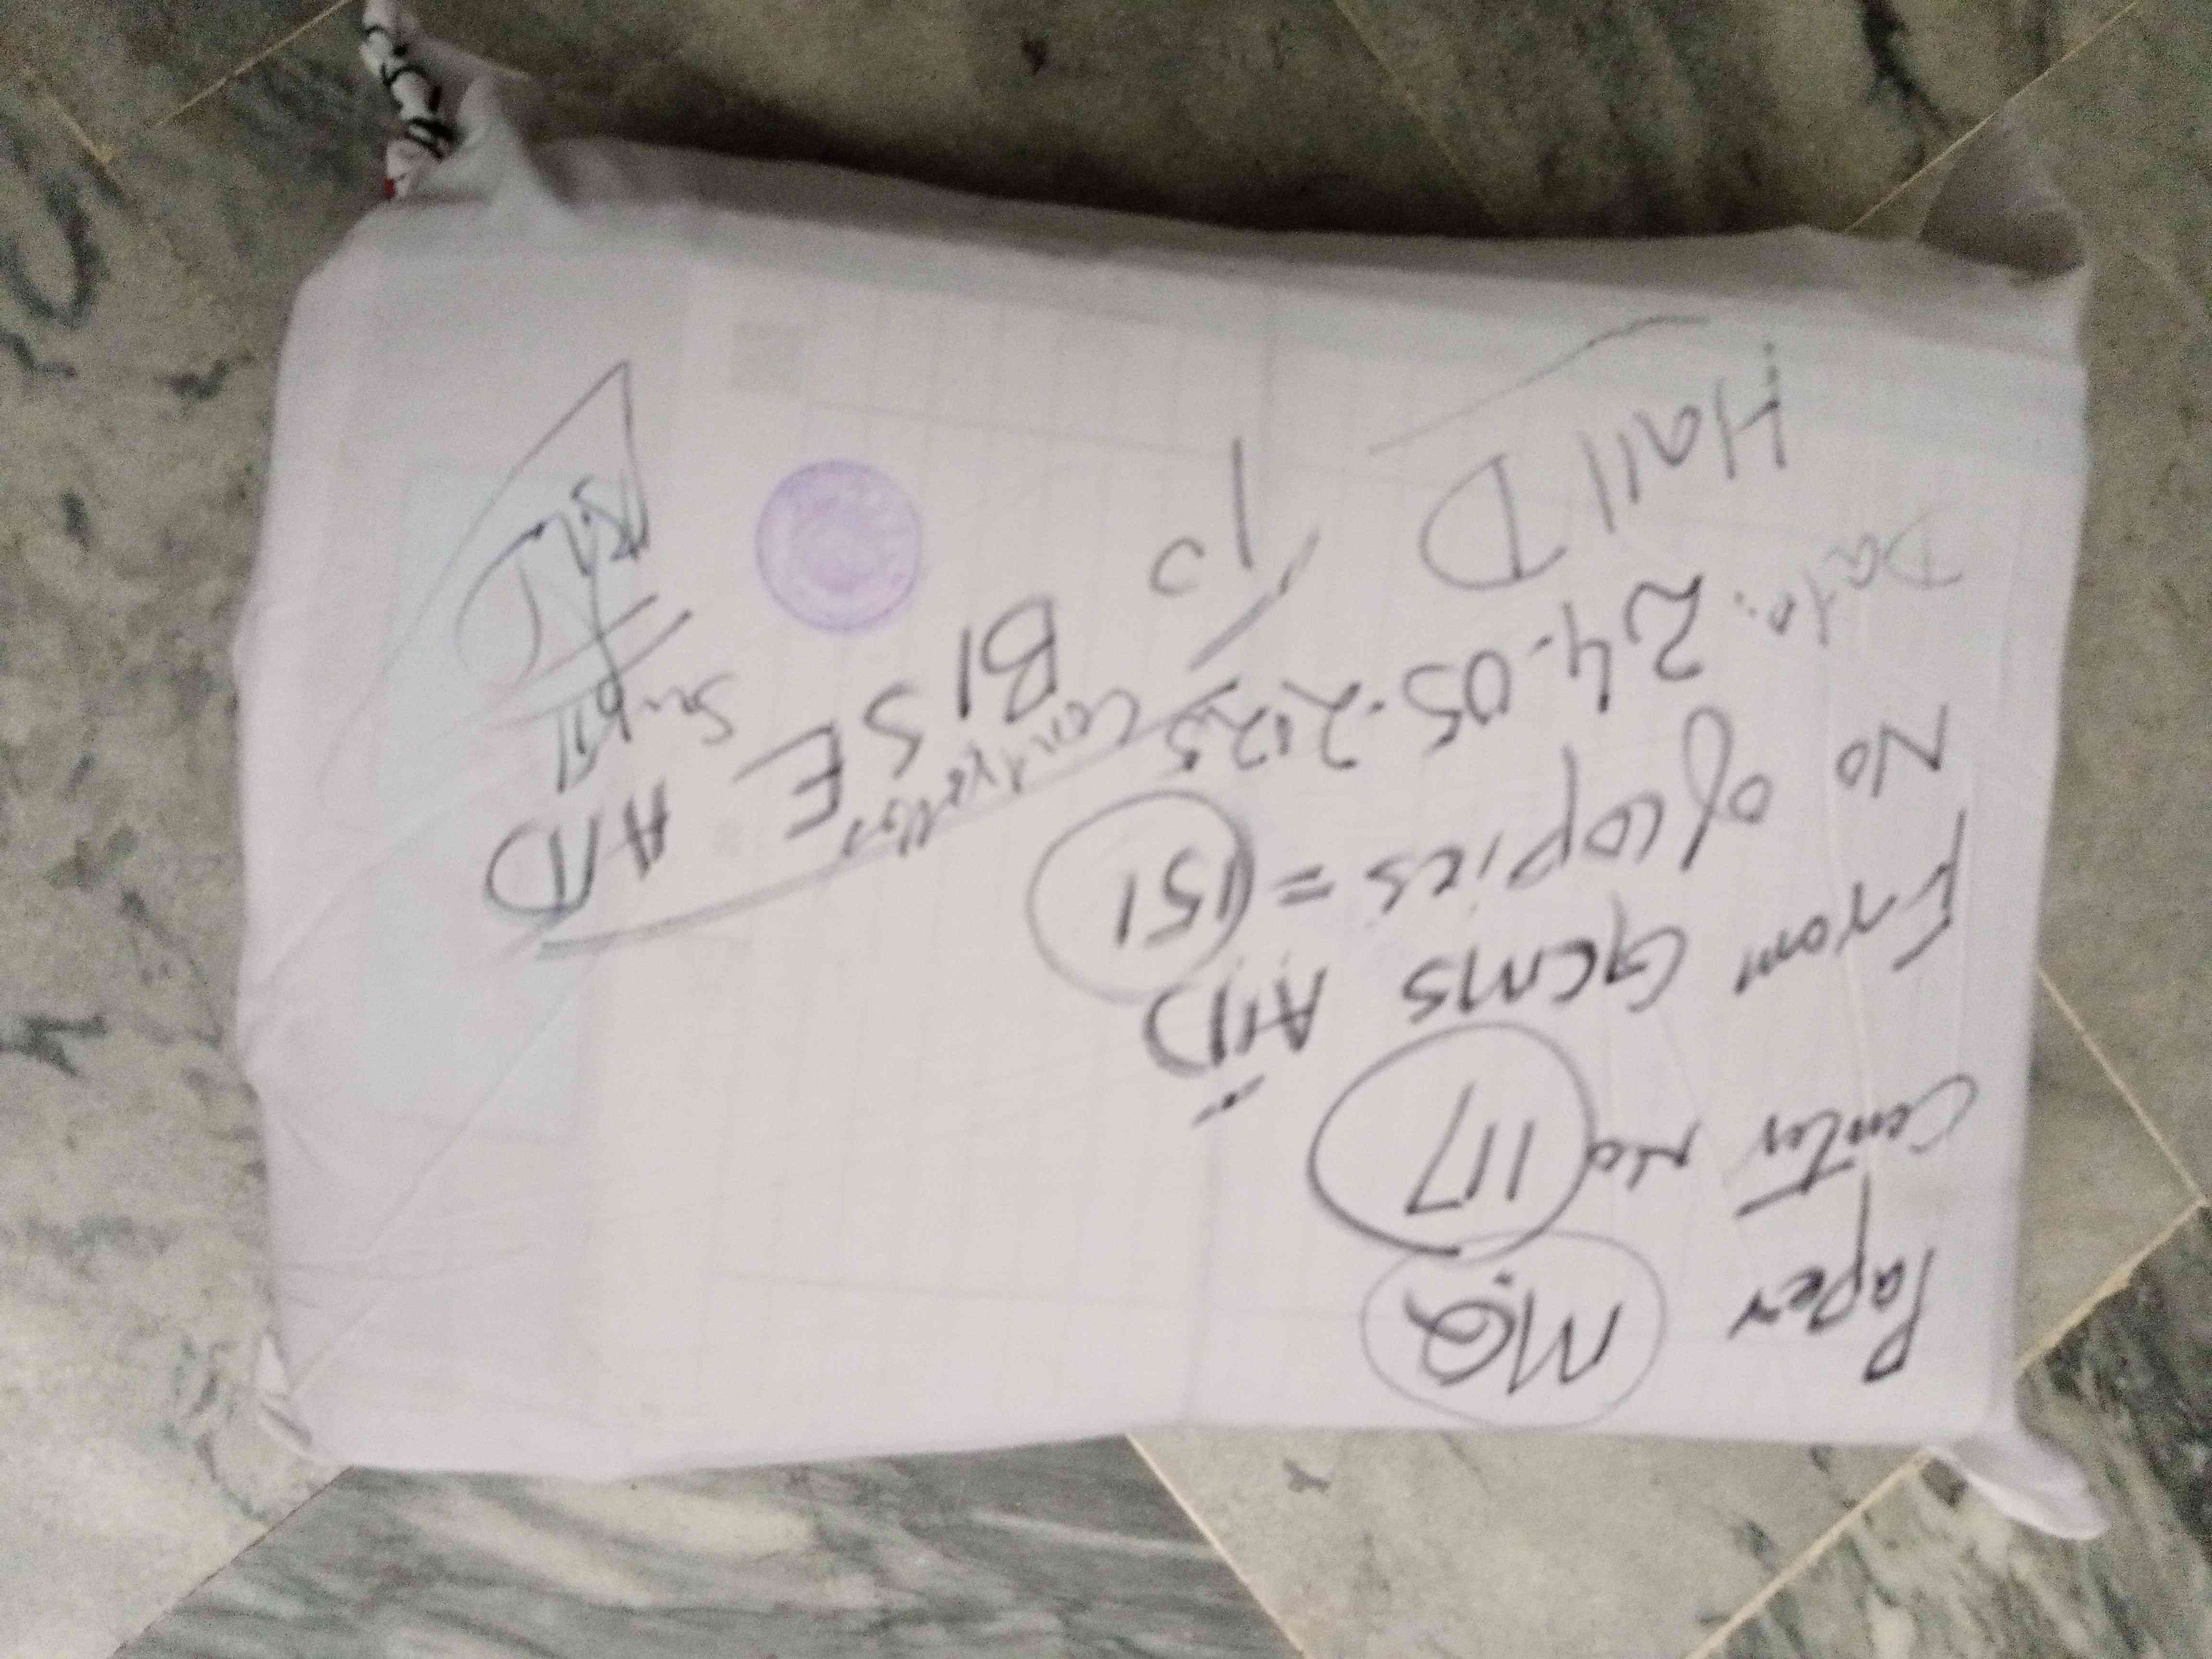 Paper MQ
Center No 117
From GCMS ATD
No of copies = 151
Date. 24.05.2025
Hall D
To
Controller
BISE ATD
Supdt